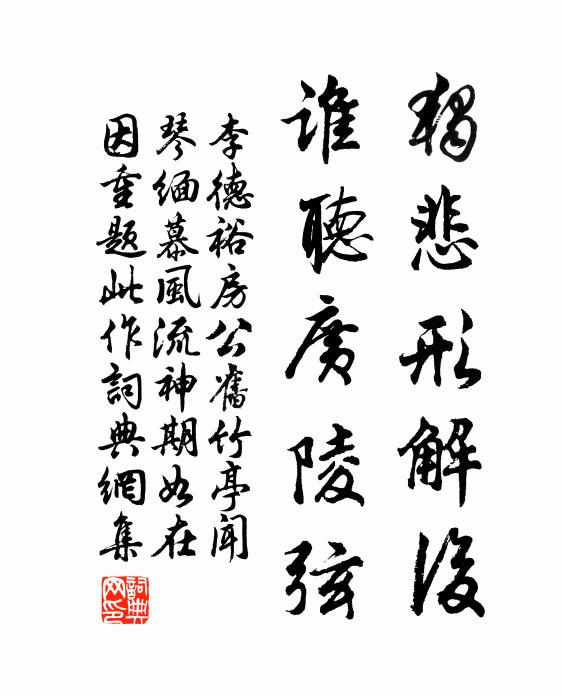 獨悲形解後
誰聽廣陵弦
李德裕房公舊竹亭聞
琴緬慕風流神期如在
因重題此作詞典網集
詞典
网印